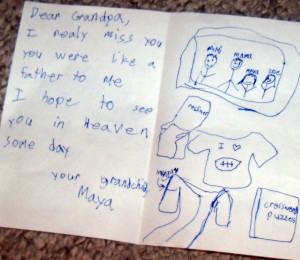 Dear Grandpa,
I realy miss you
you were like a
father to me
I hope to see
you in Heaven
some day
your grandchild,
Maya
MAMA
I ♡
crossword
puzzles